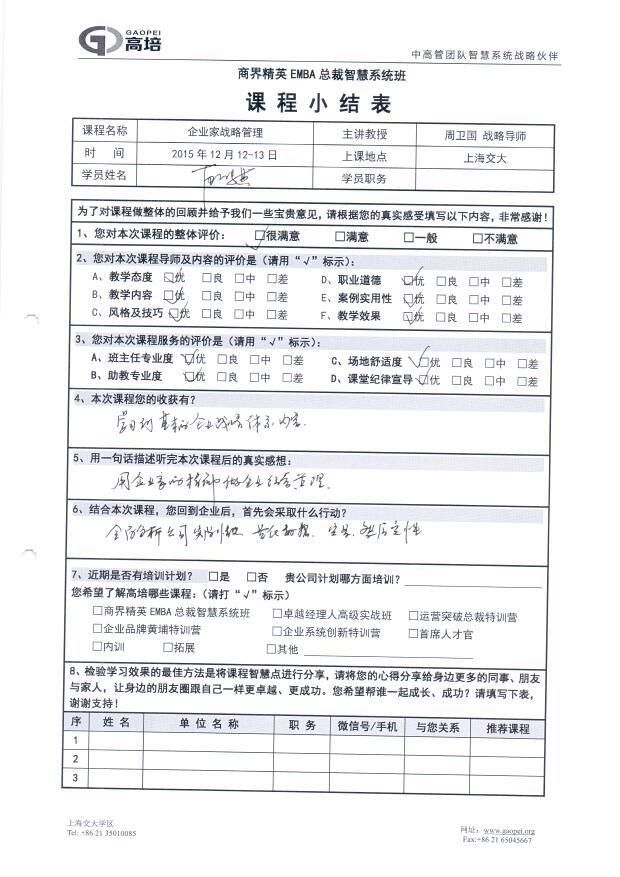 GAOPEI
高培
中高管团队智慧系统战略伙伴
商界精英 EMBA 总裁智慧系统班
课 程 小 结 表
课程名称 企业家战略管理 主讲教授 周卫国 战略导师
时 间 2015 年 12 月 12-13 日 上课地点 上海交大
学员姓名 学员职务
为了对课程做整体的回顾并给予我们一些宝贵意见，请根据您的真实感受填写以下内容，非常感谢！
1、您对本次课程的整体评价： ☑很满意 □满意 □一般 □不满意
2、您对本次课程导师及内容的评价是（请用“√”标示）：
A、教学态度 ☑优 □良 □中 □差 D、职业道德 ☑优 □良 □中 □差
B、教学内容 ☑优 □良 □中 □差 E、案例实用性 ☑优 □良 □中 □差
C、风格及技巧 ☑优 □良 □中 □差 F、教学效果 ☑优 □良 □中 □差
3、您对本次课程服务的评价是（请用“√”标示）：
A、班主任专业度 ☑优 □良 □中 □差 C、场地舒适度 ☑优 □良 □中 □差
B、助教专业度 ☑优 □良 □中 □差 D、课堂纪律宣导 ☑优 □良 □中 □差
4、本次课程您的收获有？
企业战略体系内容.
5、用一句话描述听完本次课程后的真实感想：
用企业家的精神做企业经营管理.
6、结合本次课程，您回到企业后，首先会采取什么行动？
全方分析公司
7、近期是否有培训计划？ □是 □否 贵公司计划哪方面培训？
您希望了解高培哪些课程：（请打“√”标示）
□商界精英 EMBA 总裁智慧系统班 □卓越经理人高级实战班 □运营突破总裁特训营
□企业品牌黄埔特训营 □企业系统创新特训营 □首席人才官
□内训 □拓展 □其他
8、检验学习效果的最佳方法是将课程智慧点进行分享，请将您的心得分享给身边更多的同事、朋友
与家人，让身边的朋友圈跟自己一样更卓越、更成功。您希望帮谁一起成长、成功？请填写下表，
谢谢支持！
序 姓 名 单 位 名 称 职 务 微信号/手机 与您关系 推荐课程
1
2
3
上海交大学区
Tel: +86 21 35010085
网址：www.gaopei.org
Fax:+86 21 65045667